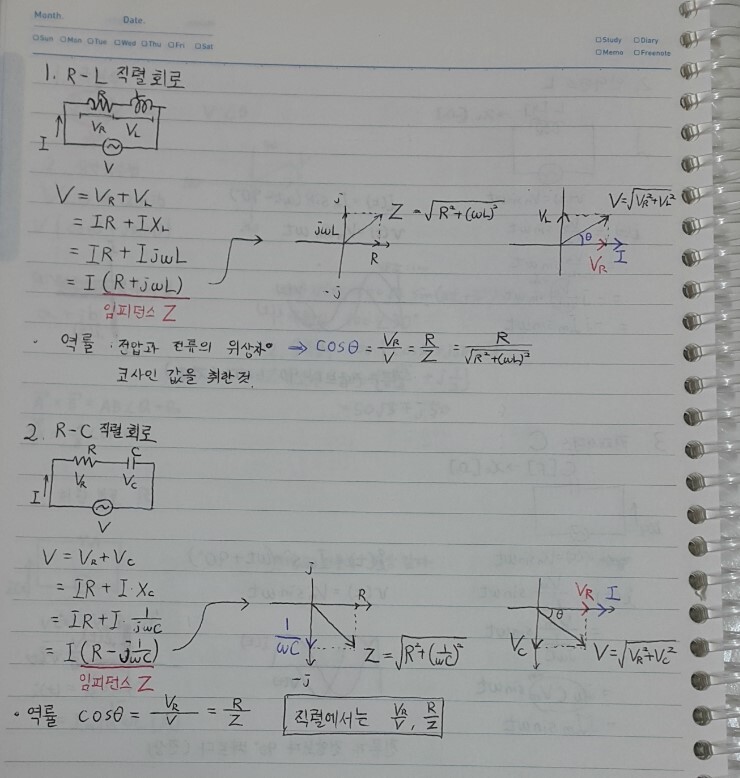 Month. Date.
□Sun □Mon □Tue □Wed □Thu □Fri □Sat
□Study □Diary
□Memo □Freenote
1. R-L 직렬회로
R L
V_R V_L
I
V
V = V_R + V_L
= IR + IX_L
= IR + IjωL
= I (R+jωL)
임피던스 Z
j
jωL
Z = √R²+(ωL)²
R
-j
V_L
V=√V_R²+V_L²
θ
V_R I
· 역률 : 전압과 전류의 위상차의 ⇒ cosθ = V_R/V = R/Z = R/√R²+(ωL)²
코사인 값을 취한것.
2. R-C 직렬회로
R C
V_R V_C
I
V
V = V_R + V_C
= IR + I·X_C
= IR + I· 1/jωC
= I(R-j1/ωC)
임피던스 Z
j
R
1/ωC
Z=√R²+(1/ωC)²
-j
V_R I
θ
V_C
V=√V_R²+V_C²
· 역률 cosθ = V_R/V = R/Z
직렬에서는 V_R/V, R/Z